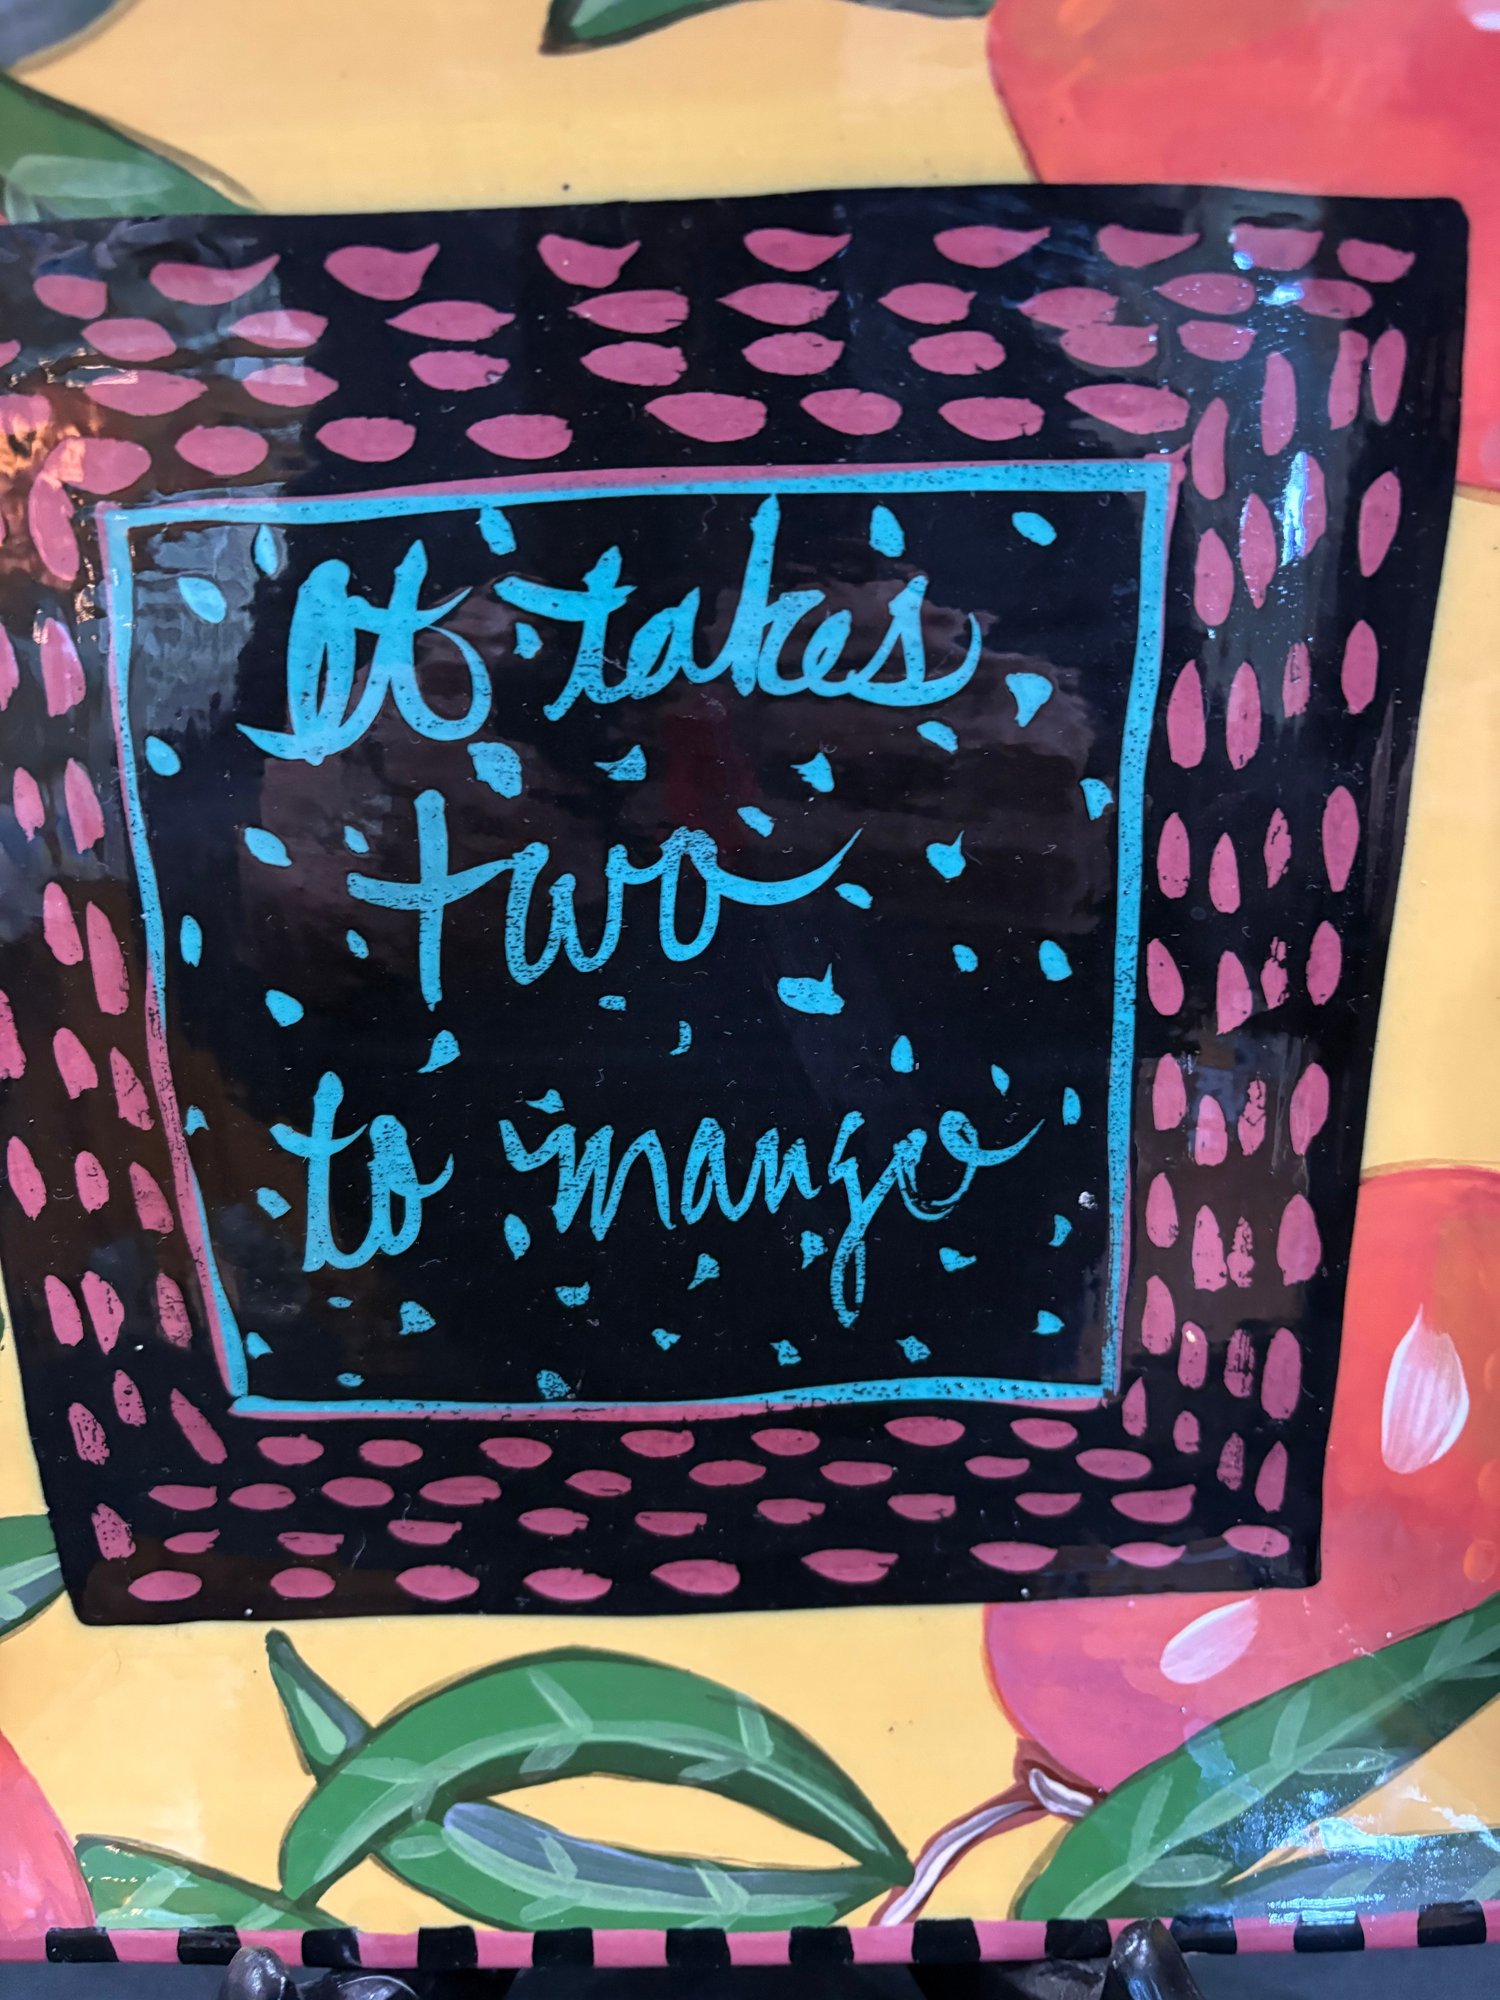 It takes
two
to mango